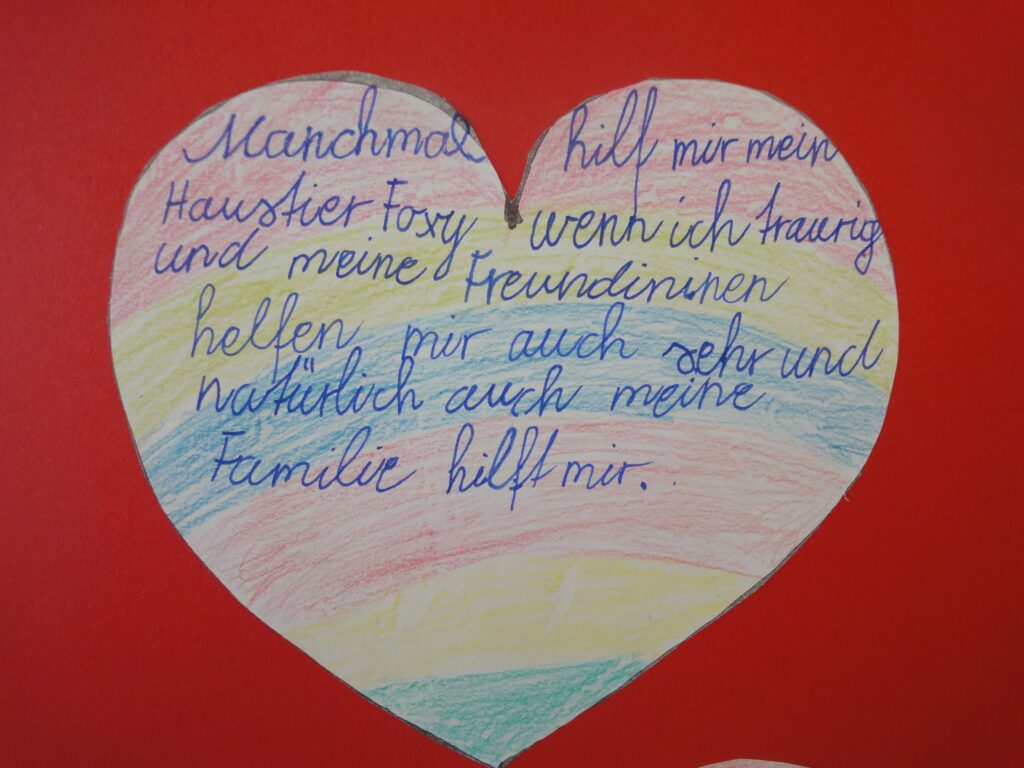 Manchmal hilf mir mein
Haustier Foxy wenn ich traurig
und meine Freundininen
helfen mir auch sehr und
natürlich auch meine
Familie hilft mir.